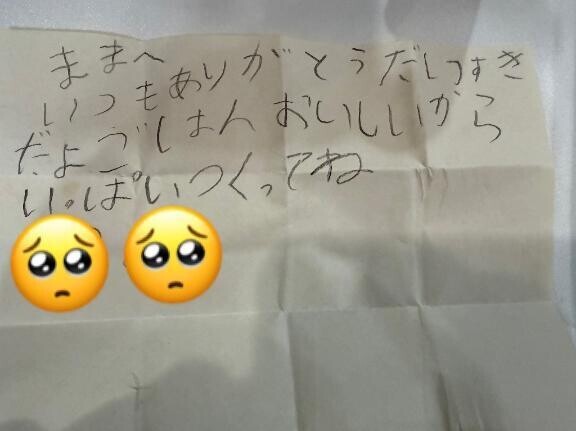 ままへ
いつもありがとうだいすき
だよごはんおいしいから
いっぱいつくってね